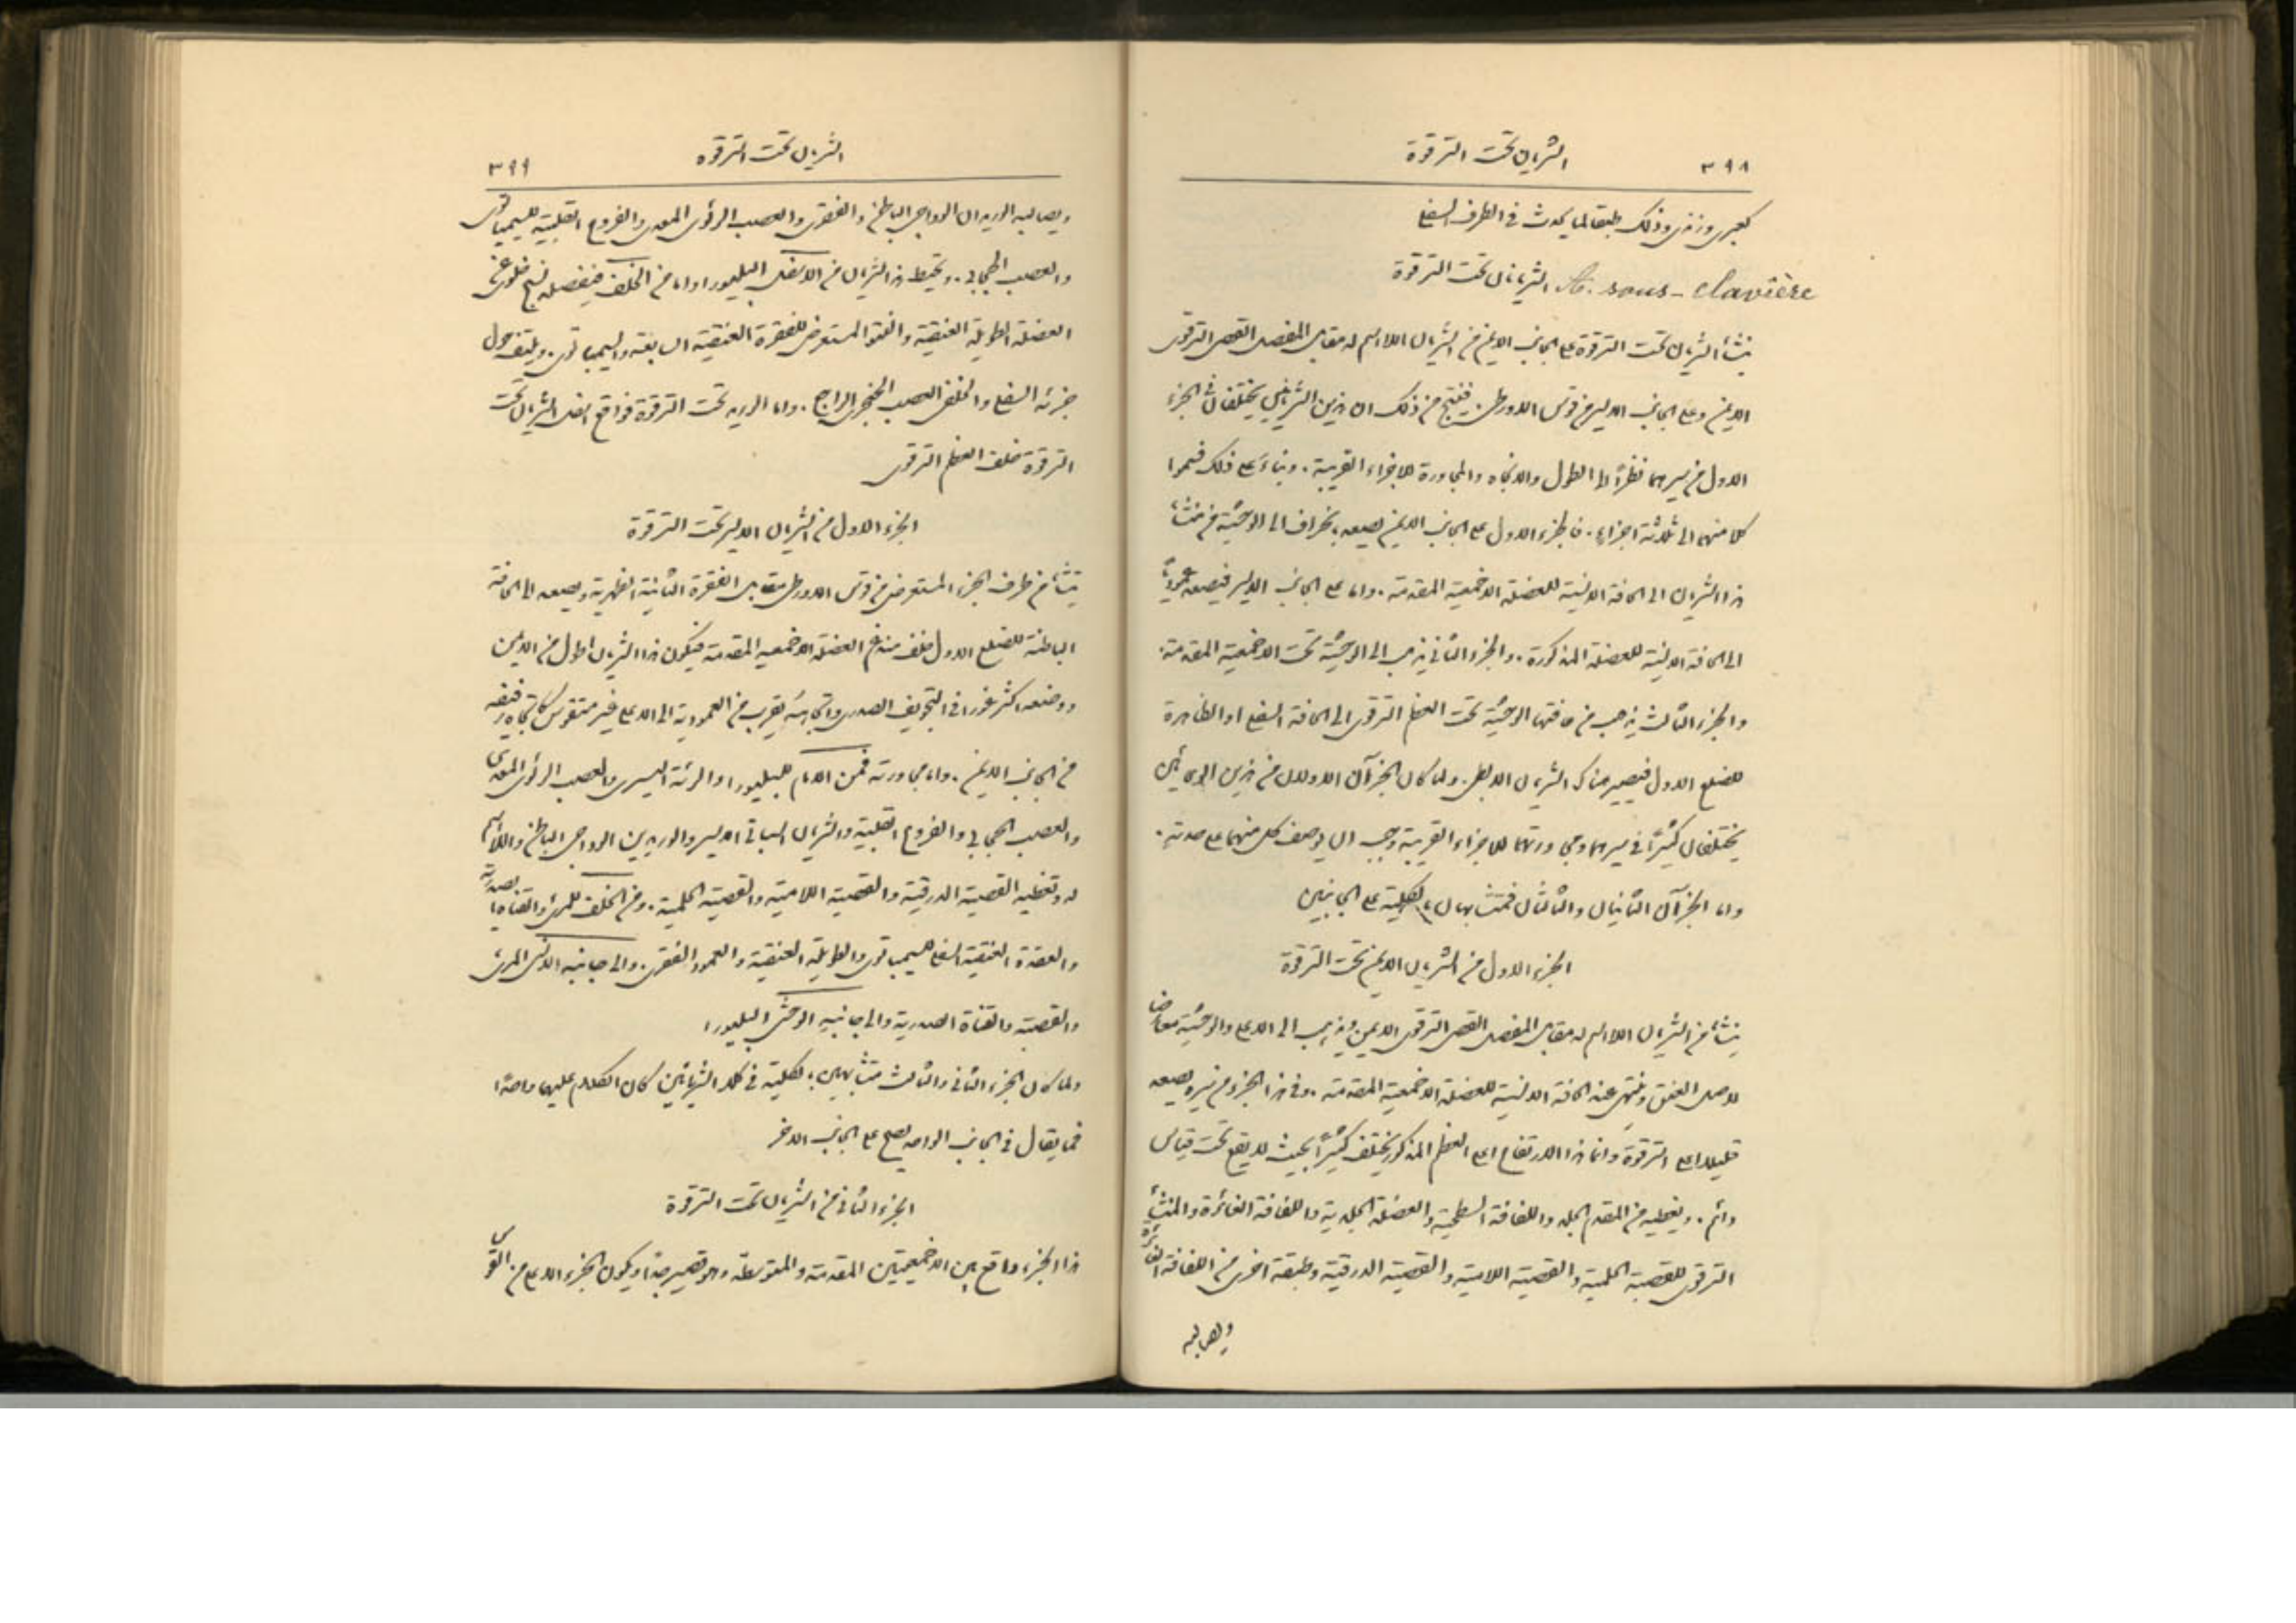 ٣٩٨ الشريان تحت الترقوة
كعبرى وزندى وذلك طبقا لما يحدث فى الطرف السفلى
A. sous-clavière الشريانان تحت الترقوة
ينشأ الشريان تحت الترقوة على الجانب الايمن من الشريان اللااسم له مقابل المفصل القصى الترقوى
الايمن وعلى الجانب الايسر من قوس الاورطى. فينتج من ذلك ان هذين الشريانين يختلفان فى الجزء
الاول من سيرهما نظرًا الى الطول والاتجاه والمجاورة للاجزاء القريبة. وبناءً على ذلك قسموا
كلا منهما الى ثلاثة اجزاء. فالجزء الاول على الجانب الايمن يصعد بانحراف الى الوحشية من منشأ
هذا الشريان الى الحافة الانسية للعضلة الاخمعية المقدمة. واما على الجانب الايسر فيصعد عموديًا
الى الحافة الانسية للعضلة المذكورة. والجزء الثانى يذهب الى الوحشية تحت الاخمعية المقدمة.
والجزء الثالث يذهب من حافتها الوحشية تحت العظم الترقوى الى الحافة السفلى او الظاهرة
للضلع الاول فيصير هناك الشريان الابطى. ولما كان الجزآن الاولان من هذين الوعائين
يختلفان كثيرًا فى سيرهما ومجاورتهما للاجزاء القريبة وجب ان يوصف كل منهما على حدته.
واما الجزآن الثانيان والثالثان فمتشابهان بالكلية على الجانبين
الجزء الاول من الشريان الايمن تحت الترقوة
ينشأ من الشريان اللااسم له مقابل المفصل القصى الترقوى الايمن ويذهب الى الاعلى والوحشية معارضا
لاصل العنق وينتهى عند الحافة الانسية للعضلة الاخمعية المقدمة. وفى هذا الجزء من سيره يصعد
قليلا اعلى الترقوة وانما هذا الارتفاع اعلى العظم المذكور يختلف كثيرًا بحيث لا يقع تحت قياس
دائم. ويغطيه من المقدم الجلد واللفافة السطحية والعضلة الجلدية واللفافة الغائرة والمنشأ
الترقوى للقصية الحلمية والقصية اللامية والقصية الدرقية وطبقة اخرى من اللفافة الغائرة
ويصالبه
الشريان تحت الترقوه ٣٩٩
ويصالبه الوريدان الوداجى الباطن والفقرى والعصب الرئوى المعدى والفروع القلبية للسيمباتوى
والعصب الحجابى. ويحيط هذا الشريان من الاسفل البليورا واما من الخلف فيفصله نسج خلوى عن
العضلة الطويلة العنقية والنتو المستعرض للفقرة العنقية السابعة والسيمباتوى. ويلتف حول
جزئه السفلى والخلفى العصب الحنجرى الراجع. واما الوريد تحت الترقوة فواقع اسفل الشريان تحت
الترقوة خلف العظم الترقوى
الجزء الاول من الشريان الايسر تحت الترقوة
ينشأ من طرف الجزء المستعرض من قوس الاورطى مقابل الفقرة الثانية الظهرية ويصعد الى الحافة
الباطنة للضلع الاول خلف مندغم العضلة الاخمعية المقدمة فيكون هذا الشريان اطول من الايمن
ووضعه اكثر غورا فى التجويف الصدرى واتجاهه يقرب من العمودية الى الاعلى غير متقوس كاتجاه رفيقه
من الجانب الايمن. واما مجاورته فمن الامام للبليورا والرئة اليسرى والعصب الرئوى المعدى
والعصب الحجابى والفروع القلبية والشريان السباتى الايسر والوريدين الوداجى الباطن واللااسم
له وتغطيه القصية الدرقية والقصية اللامية والقصية الحلمية. ومن الخلف للمرئ والقناة الصدرية
والعقدة العنقية السفلى للسيمباتوى والطويلة العنقية والعمود الفقرى. والى جانبه الانسى المرئ
والقصبة والقناة الصدرية والى جانبه الوحشى البليورا
ولما كان الجزء الثانى والثالث متشابهين بالكلية فى كلا الشريانين كان الكلام عليهما واحدًا
فما يقال فى الجانب الواحد يصح على الجانب الاخر
الجزء الثانى من الشريان تحت الترقوة
هذا الجزء واقع بين الاخمعيتين المقدمة والمتوسطة وهو قصير جدًا ويكون الجزء الاعلى من القوس